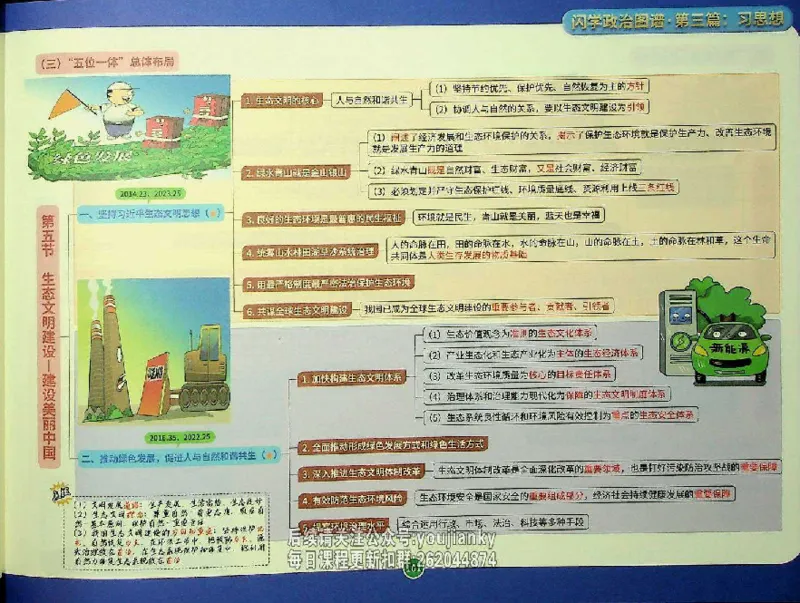 闪学政治图谱·第三篇：习思想
（三）“五位一体”总体布局
绿色发展
2014.23、2023.25
第五节 生态文明建设—建设美丽中国
一、坚持习近平生态文明思想（★）
1. 生态文明的核心
人与自然和谐共生
（1）坚持节约优先、保护优先、自然恢复为主的方针
（2）协调人与自然的关系，要以生态文明建设为引领
2. 绿水青山就是金山银山
（1）阐述了经济发展和生态环境保护的关系，揭示了保护生态环境就是保护生产力、改善生态环境
就是发展生产力的道理
（2）绿水青山既是自然财富、生态财富，又是社会财富、经济财富
（3）必须划定并严守生态保护红线、环境质量底线、资源利用上线三条红线
3. 良好的生态环境是最普惠的民生福祉
环境就是民生，青山就是美丽，蓝天也是幸福
4. 统筹山水林田湖草沙系统治理
人的命脉在田，田的命脉在水，水的命脉在山，山的命脉在土，土的命脉在林和草，这个生命
共同体是人类生存发展的物质基础
5. 用最严格制度最严密法治保护生态环境
6. 共谋全球生态文明建设
我国已成为全球生态文明建设的重要参与者、贡献者、引领者
新能源
2016.35、2022.25
二、推动绿色发展，促进人与自然和谐共生（★）
1. 加快构建生态文明体系
（1）生态价值观念为准则的生态文化体系
（2）产业生态化和生态产业化为主体的生态经济体系
（3）改善生态环境质量为核心的目标责任体系
（4）治理体系和治理能力现代化为保障的生态文明制度体系
（5）生态系统良性循环和环境风险有效控制为重点的生态安全体系
2. 全面推动形成绿色发展方式和绿色生活方式
3. 深入推进生态文明体制改革
生态文明体制改革是全面深化改革的重要领域，也是打好污染防治攻坚战的重要保障
4. 有效防范生态环境风险
生态环境安全是国家安全的重要组成部分，经济社会持续健康发展的重要保障
5. 提高环境治理水平
综合运用行政、市场、法治、科技等多种手段
（1）文明发展道路：生产发展、生活富裕、生态良好
（2）生态文明理念：尊重自然、顺应自然、保护自然
后续请关注公众号:youjianky
每日课程更新扣群:262044874